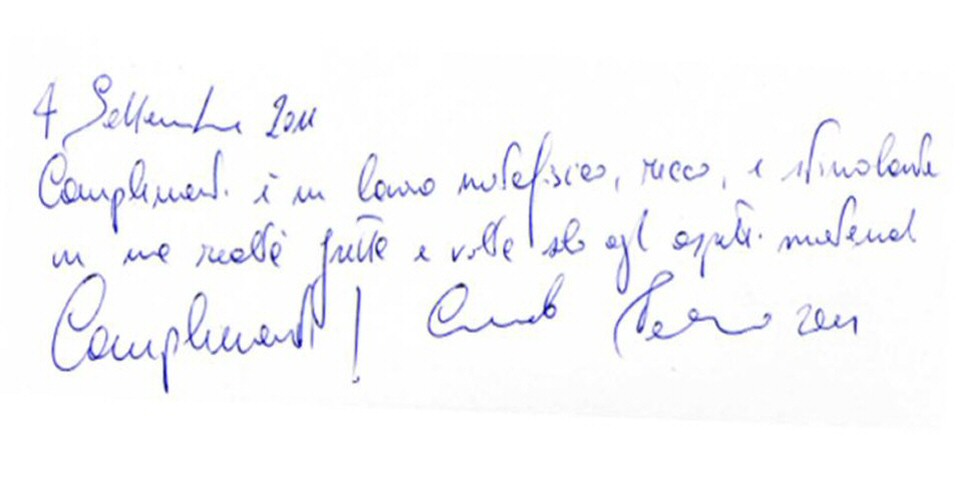 4 Settembre 2011
Complimenti è un lavoro metafisico, ricco, e stimolante
in una realtà gretta e volta solo agli aspetti materiali
Complimenti! 2011